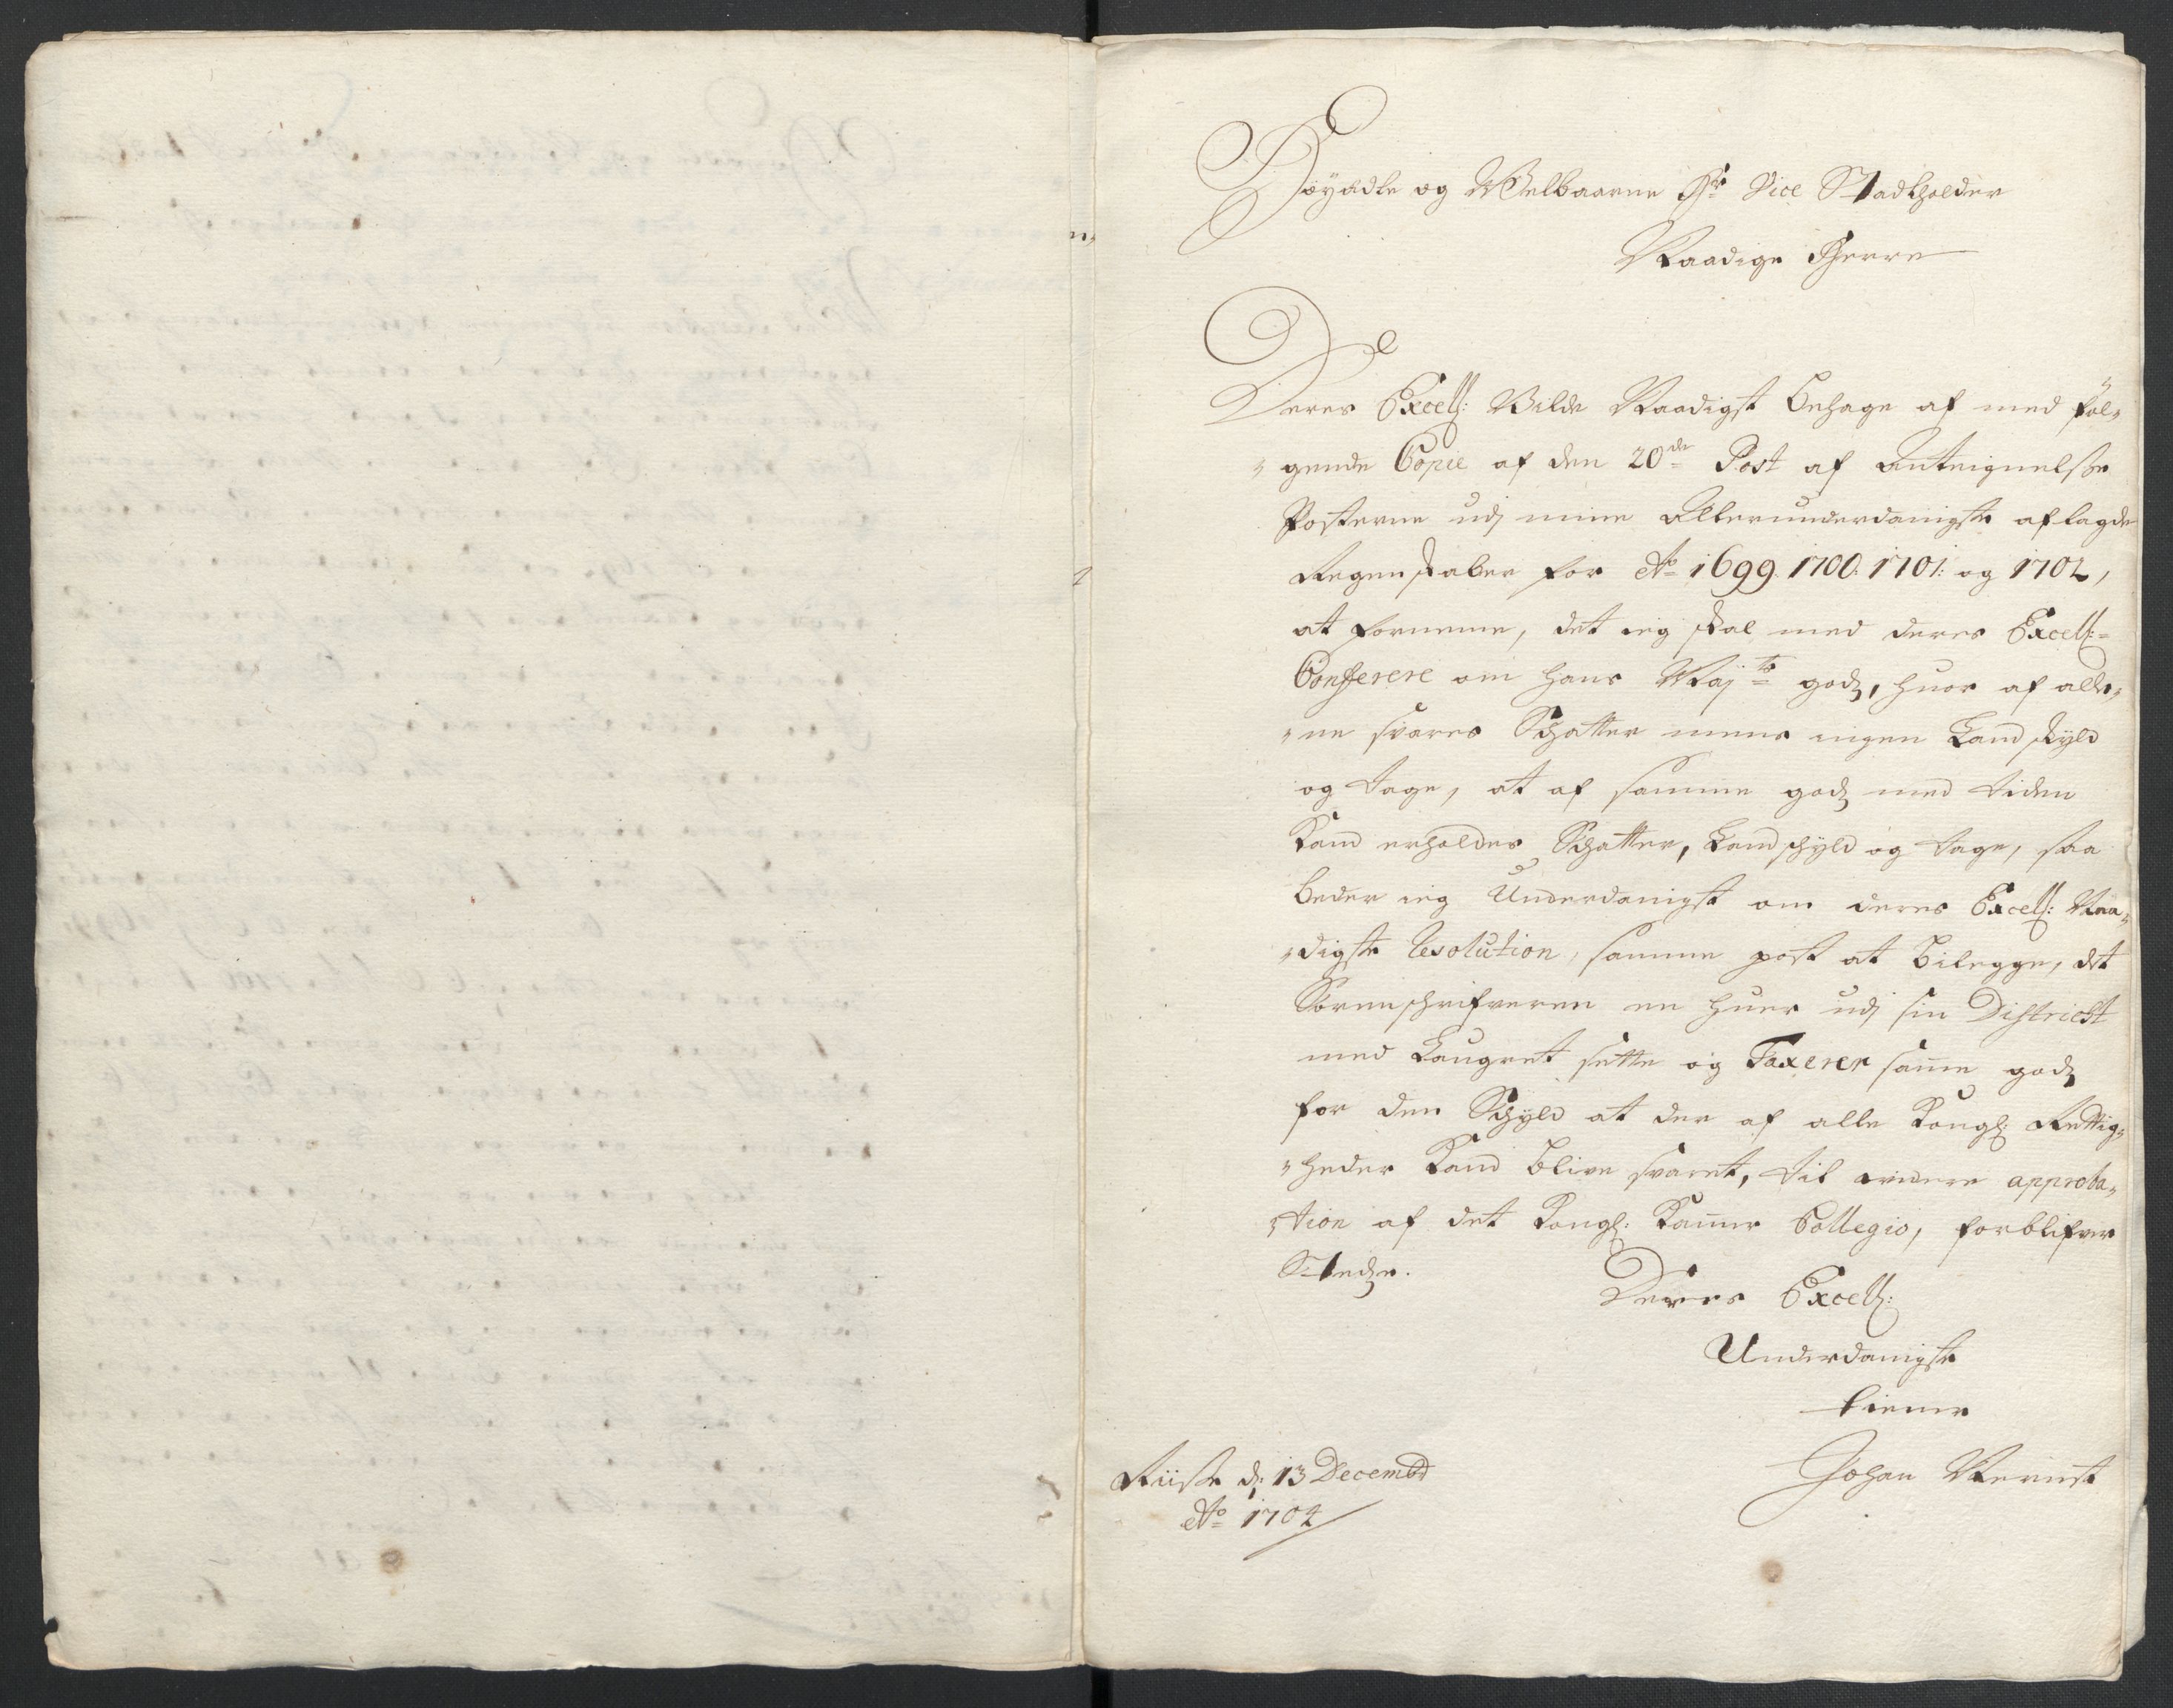 Høyædle og Welbaarne Hr Vice Stadtholder
Naadige Herre
Deres Excell: Wilde Naadigst behage af med føl-
gende Copie af den 20de Post af Anteignelsse
Posterne udj mine Allerunderdanigste aflagde
Regenskaber for Ao 1699. 1700. 1701: og 1702,
at fornemme, det ieg skal med deres Excell:
Confferere om hans Mayts godz, huor af alle-
ne svares Schatter mens ingen Landskyld
og tage, at af samme godz med tiden
Kand erholdes Schatter, Landschyld og tage, saa
beder ieg Underdanigst om deres Excell: Naa-
digste Resolution, samme post at bilegge, det
Sorenschrifveren en huer udj sin District
med Laugret sette og Taxerer samme godz
for den Schyld at der af alle Kongl: Rettig-
heder Kand blive svaret, til videre approba-
tion af det Kongl: Kammer Collegio, forblifver
Stedze.
Deres Excell:
Underdanigste
tiener
Johan
Riisse d: 13 Decembr
Ao 1704